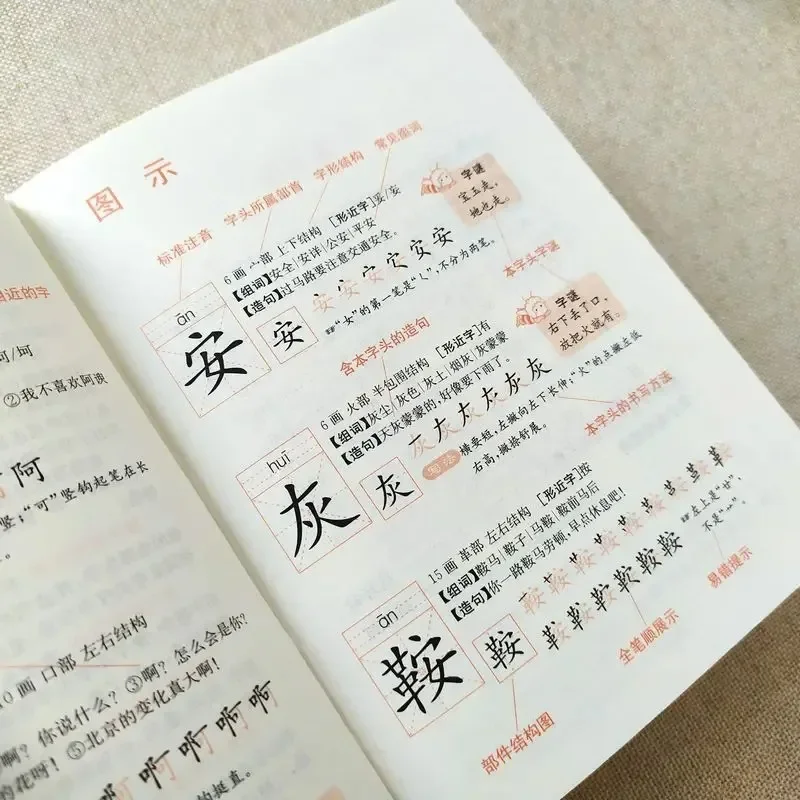 图 示
标准注音
字头所属部首
字形结构
常见组词
ān
安
安
6 画 宀部 上下结构 【形近字】妥/安
【组词】安全|安详|公安|平安
【造句】过马路要注意交通安全。
“女”的第一笔是“𡿨”,不分为两笔。
字谜
宝玉走,
她也走。
本字头字谜
含本字头的造句
huī
灰
灰
6 画 火部 半包围结构 【形近字】有
【组词】灰尘|灰色|灰土|烟灰|灰蒙蒙
【造句】天灰蒙蒙的,好像要下雨了。
写法 横要短,左撇向左下长伸;“火”的点撇左低
右高,撇捺舒展。
字谜
右下丢了口,
放把火就有。
本字头的书写方法
ān
鞍
鞍
15 画 革部 左右结构 【形近字】按
【组词】鞍马|鞍子|马鞍|鞍前马后
【造句】你一路鞍马劳顿,早点休息吧!
左上是“廿”,
不是“艹”。
易错提示
全笔顺展示
部件结构图
相近的字
可/坷
②我不喜欢阿谀
阿
竖;“可”竖钩起笔在长
10 画 口部 左右结构
啊?你说什么?③啊?怎么会是你?
啊!⑤北京的变化真大啊!
的花呀!
啊啊啊啊啊
的挺直。